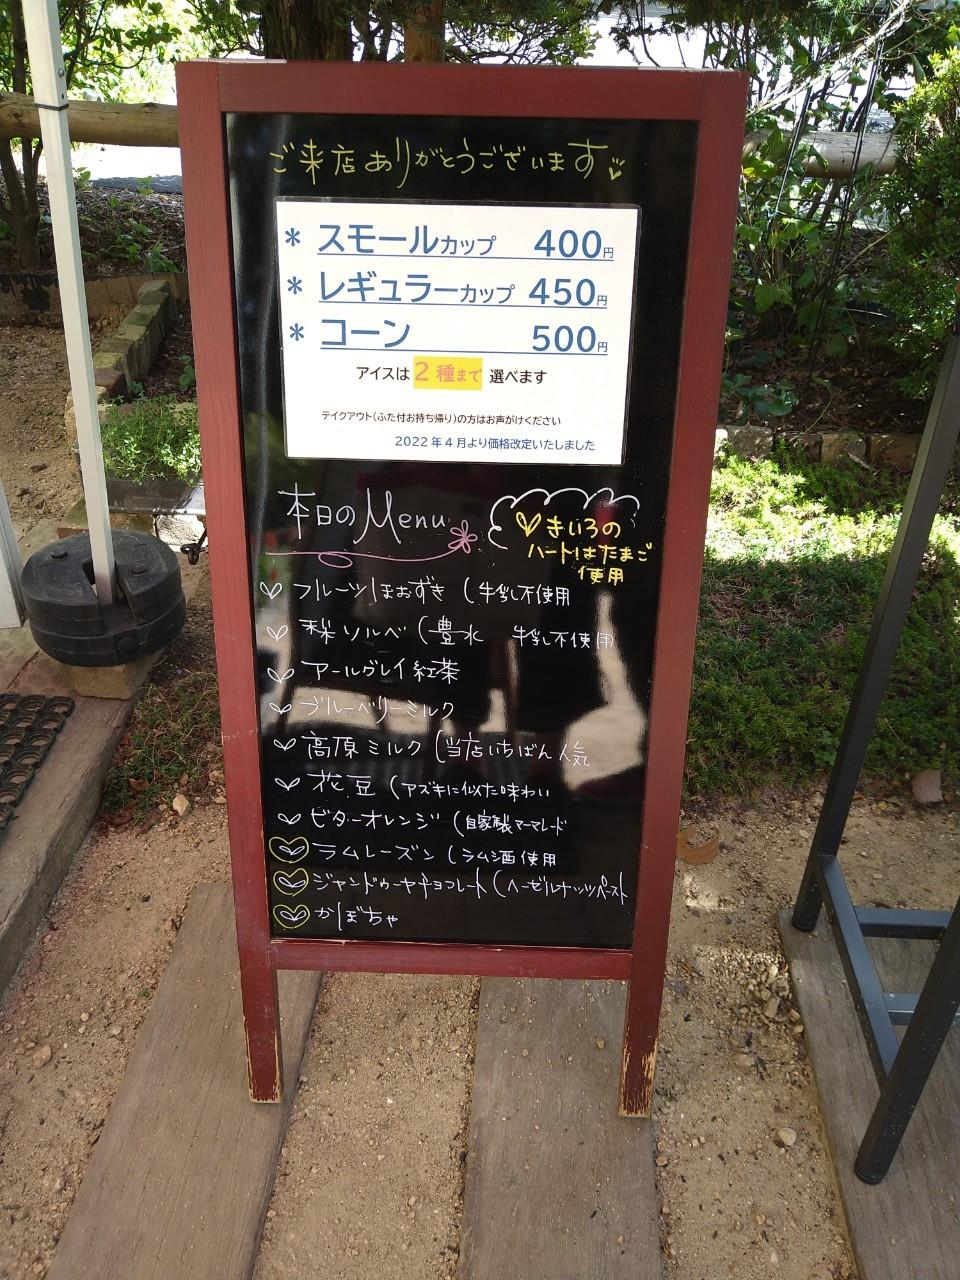 ご来店ありがとうございます
* スモールカップ 400円
* レギュラーカップ 450円
* コーン 500円
アイスは 2種まで 選べます
テイクアウト(ふた付お持ち帰り)の方はお声がけください
2022年4月より価格改定いたしました
本日のMenu
きいろの
ハートはたまご
使用
フルーツほおずき (牛乳不使用
梨ソルベ (豊水 牛乳不使用
アールグレイ紅茶
ブルーベリーミルク
高原ミルク (当店いちばん人気
花豆 (アズキに似た味わい
ビターオレンジ (自家製マーマレード
ラムレーズン (ラム酒使用
ジャンドゥーヤチョコレート (ヘーゼルナッツペースト
かぼちゃ